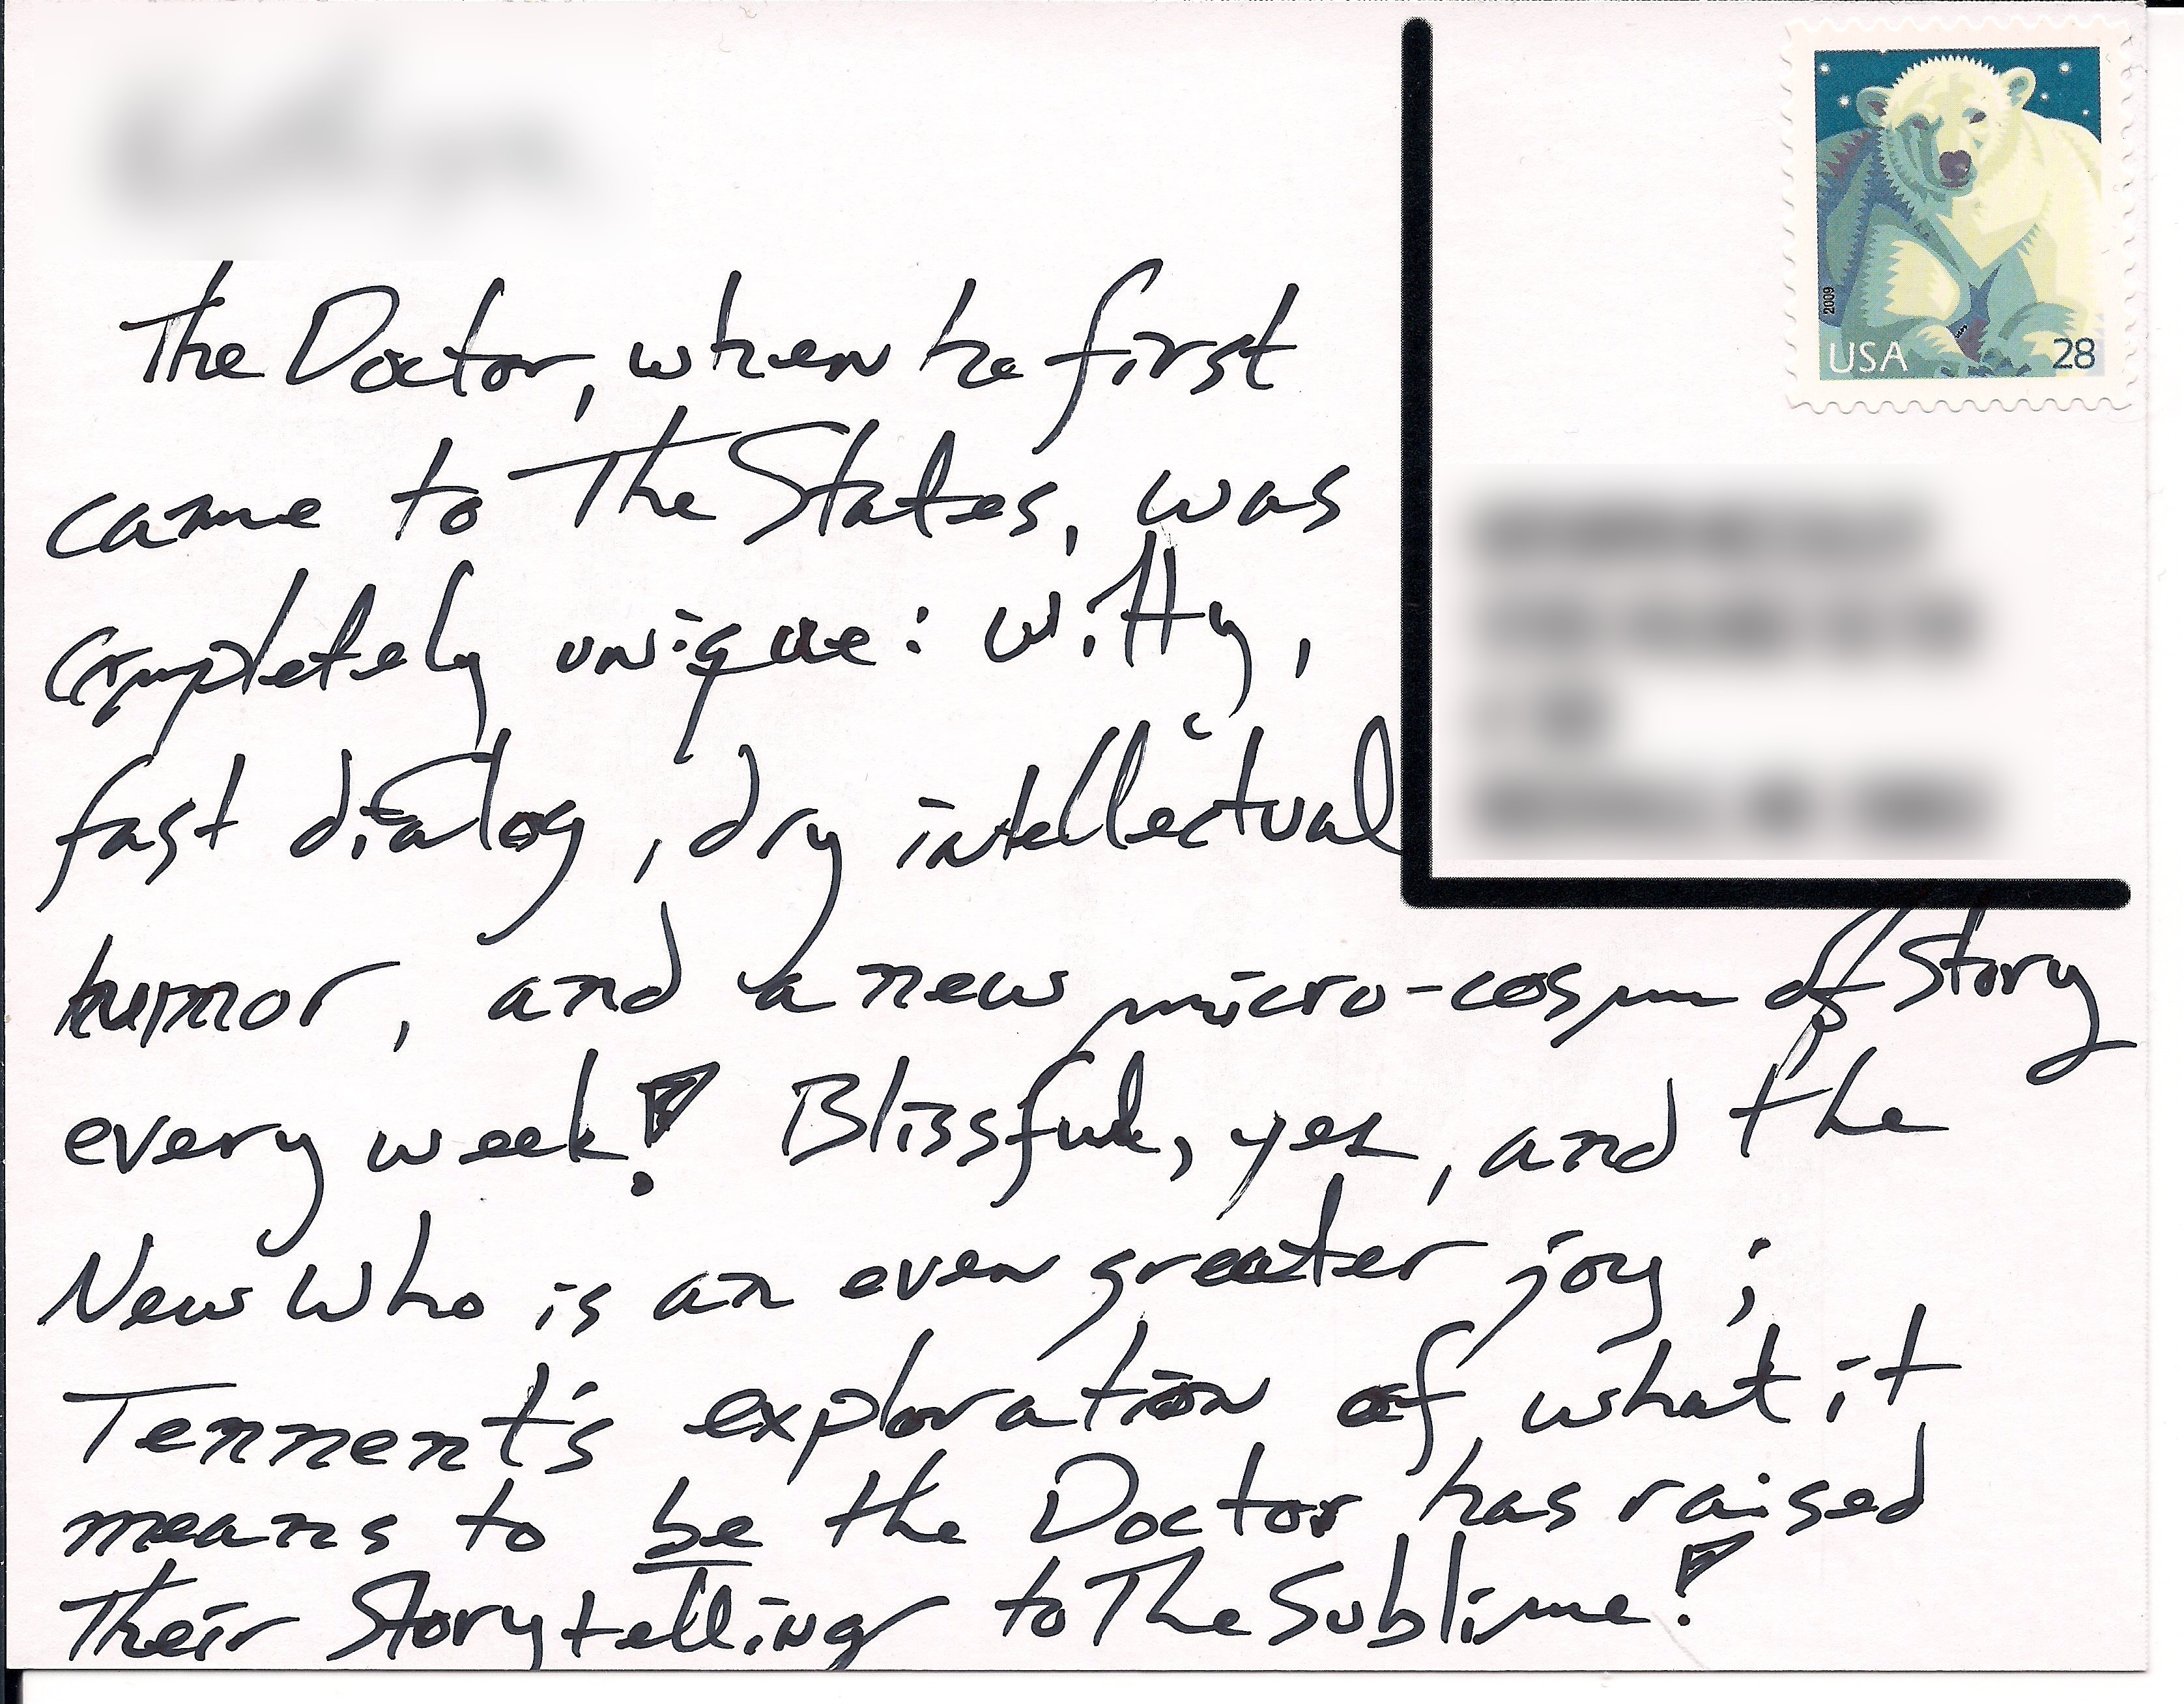 The Doctor, when he first
came to The States, was
completely unique: witty,
fast dialog, dry intellectual
humor, and a new micro-cosm of Story
every week! Blissful, yes, and the
New Who is an even greater joy;
Tennent's exploration of what it
means to be the Doctor has raised
Their Storytelling to The Sublime!
2009
USA 28